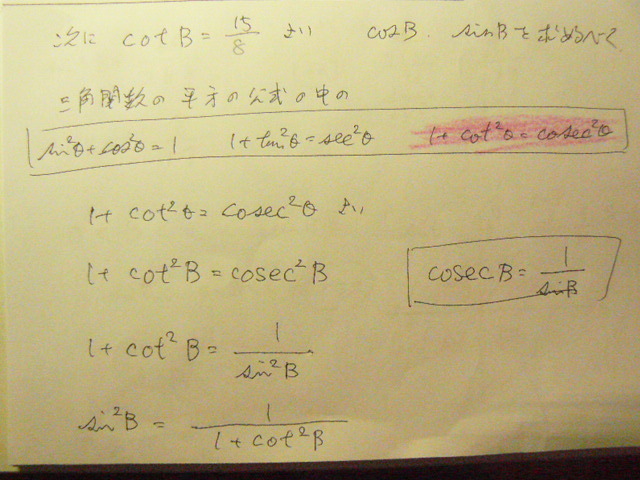 次に cot B = 15/8 より cosB. sinBを求めるべく
三角関数の平方の公式の中の
sin²θ+cos²θ=1 1+tan²θ=sec²θ 1+cot²θ=cosec²θ
1+ cot²θ= cosec²θ より
1+ cot²B = cosec²B
cosec B = 1/sinB
1+ cot²B = 1/sin²B
sin²B = 1/(1+cot²B)